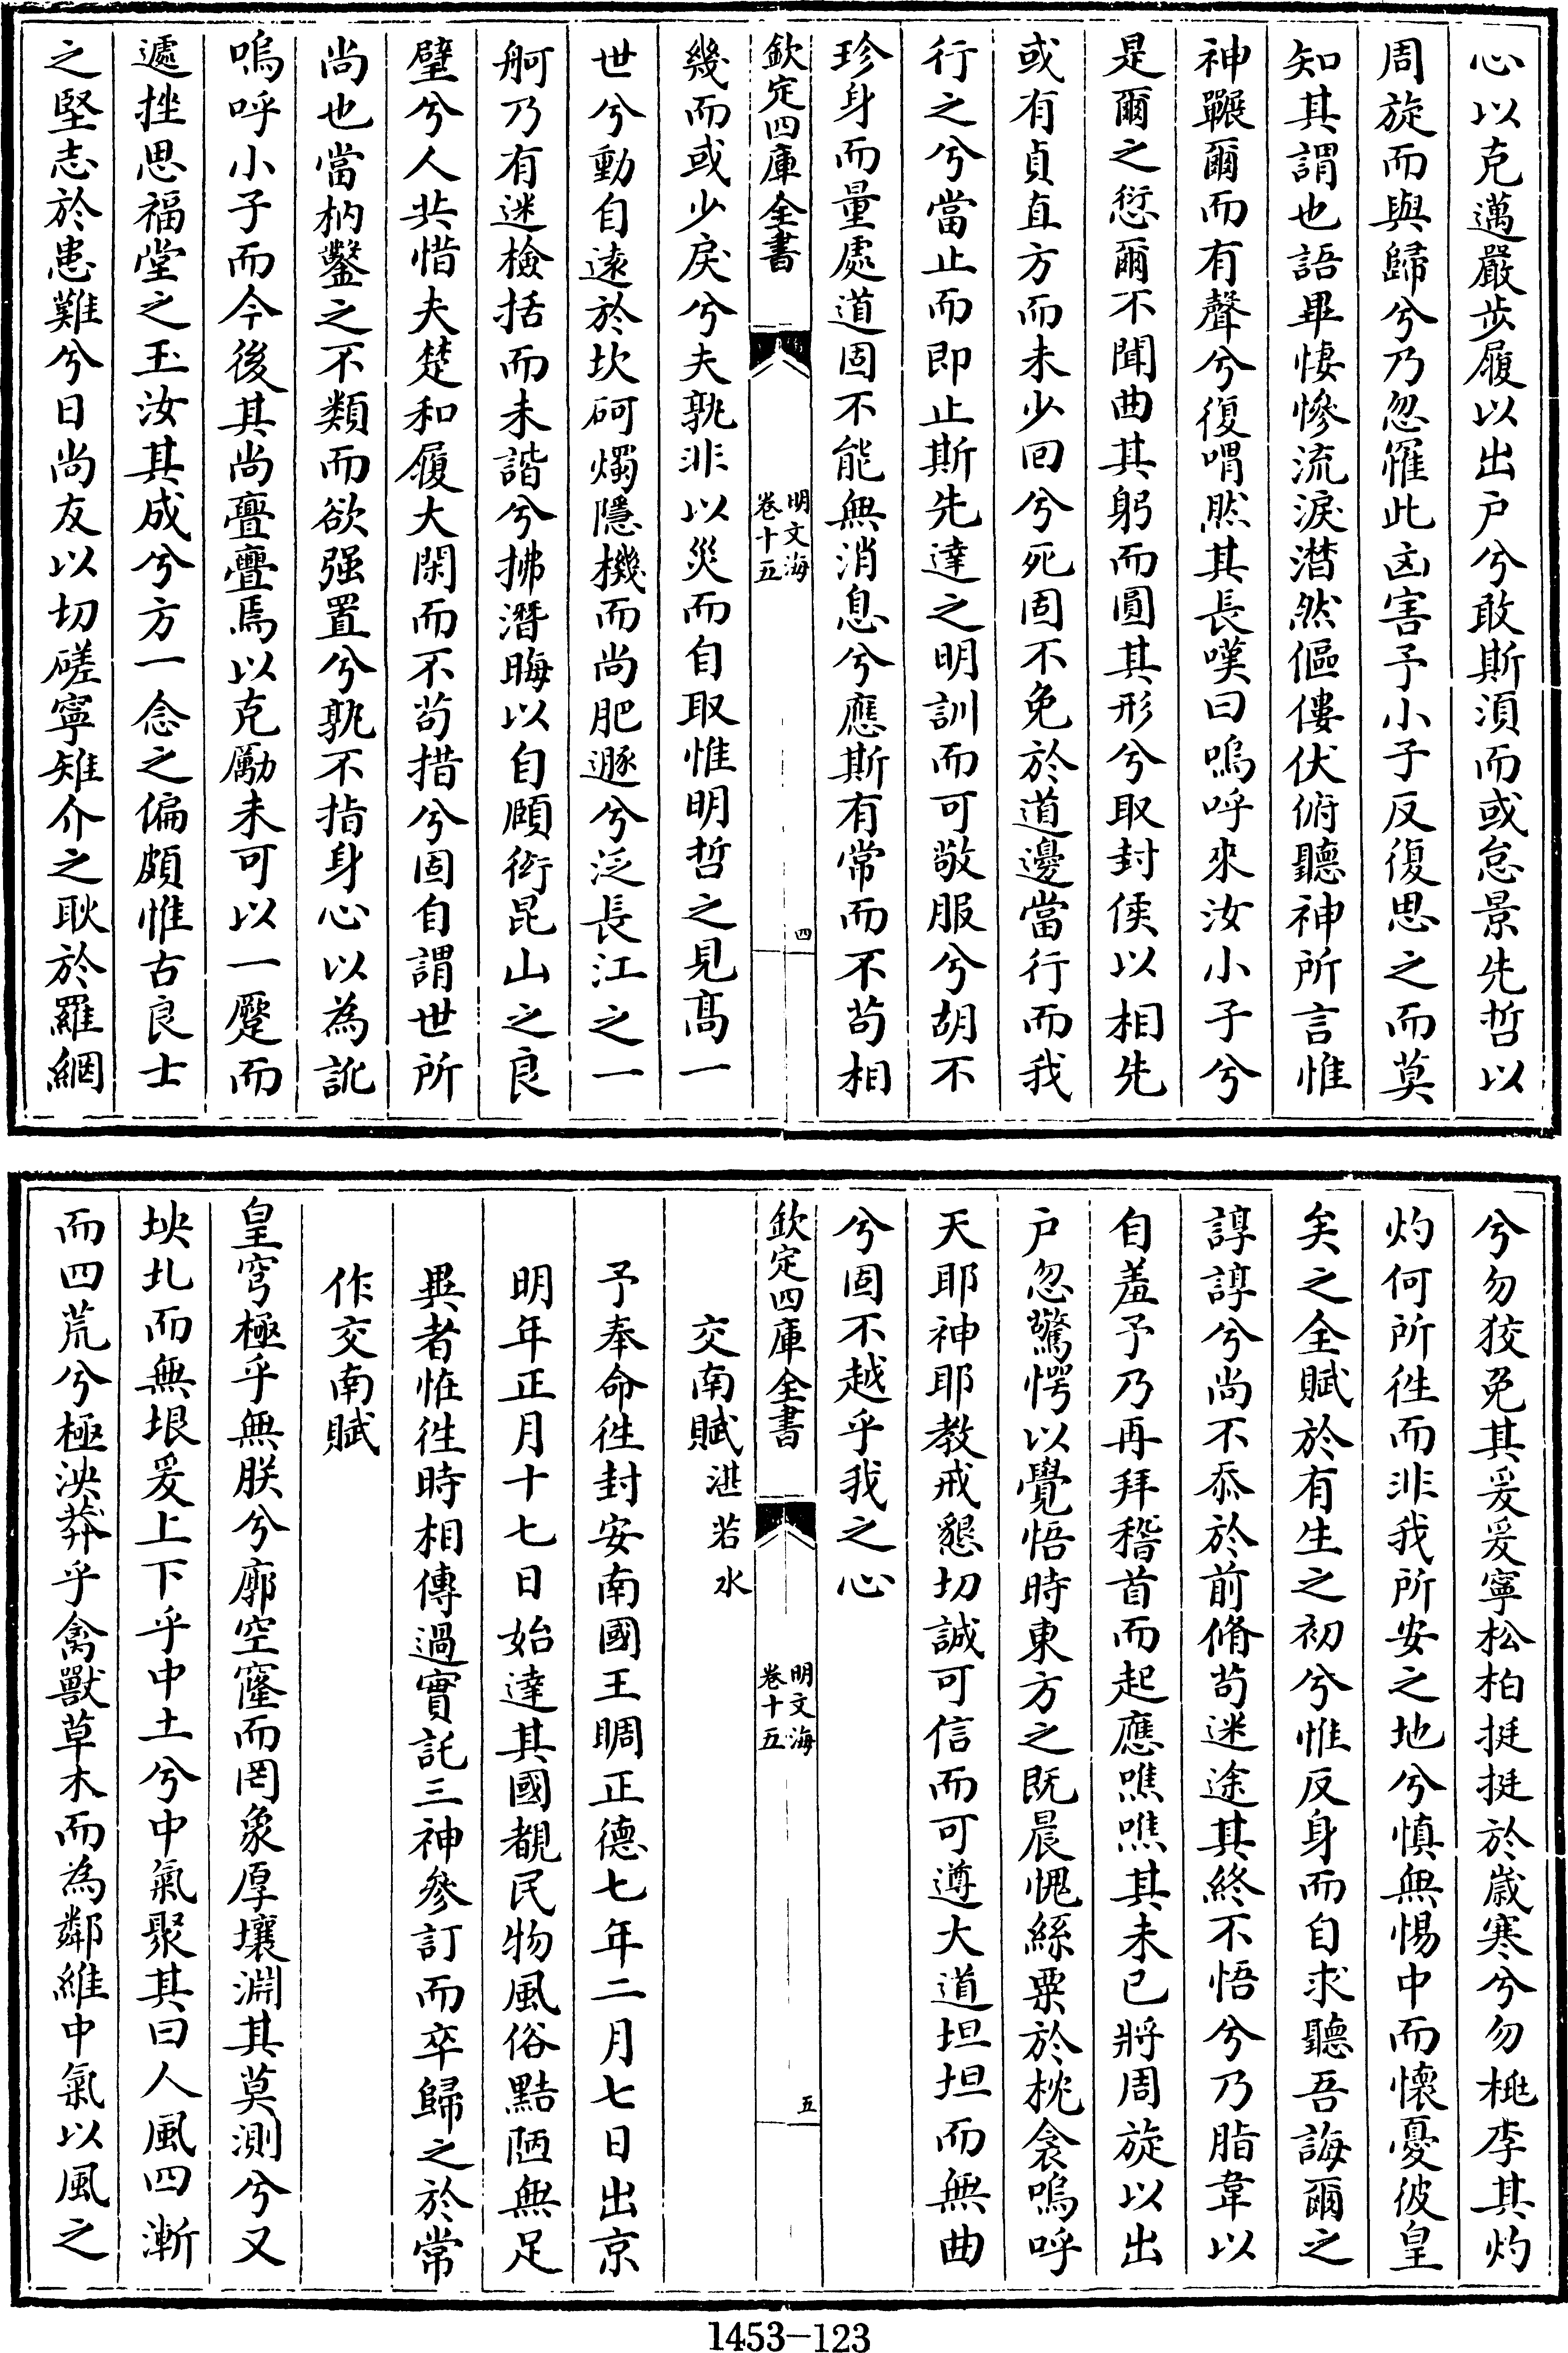 心以克邁嚴步履以出戶兮敢斯須而或怠景先哲以
周旋而與歸兮乃忽罹此凶害予小子反復思之而莫
知其謂也語畢悽慘流淚潸然傴僂伏俯聽神所言惟
神囅爾而有聲兮復喟然其長嘆曰嗚呼來汝小子兮
是爾之愆爾不聞曲其躬而圓其形兮取封侯以相先
或有貞直方而未少回兮死固不免於道邊當行而我
行之兮當止而即止斯先達之明訓而可敬服兮胡不
珍身而量處道固不能無消息兮應斯有常而不苟相
欽定四庫全書
明文海
卷十五
四
幾而或少戾兮夫孰非以災而自取惟明哲之見髙一
世兮動自遠於坎砢燭隱機而尚肥遯兮泛長江之一
舸乃有迷檢括而未諧兮拂潛晦以自頤衒昆山之良
璧兮人共惜夫楚和履大閑而不苟措兮固自謂世所
尚也當枘鑿之不類而欲强置兮孰不指身心以為訛
嗚呼小子而今後其尚亹亹焉以克勵未可以一蹷而
遽挫思福堂之玉汝其成兮方一念之偏頗惟古良士
之堅志於患難兮日尚友以切磋寧雉介之耿於羅網
兮勿狡兔其爰爰寧松柏挺挺於歲寒兮勿桃李其灼
灼何所徃而非我所安之地兮慎無惕中而懷憂彼皇
矣之全賦於有生之初兮惟反身而自求聽吾誨爾之
諄諄兮尚不忝於前脩苟迷途其終不悟兮乃脂韋以
自羞予乃再拜稽首而起應嘺嘺其未已將周旋以出
戶忽驚愕以覺悟時東方之既晨愧絲粟於枕衾嗚呼
天耶神耶教戒懇切誠可信而可遵大道坦坦而無曲
兮固不越乎我之心
欽定四庫全書
明文海
卷十五
五
交南賦 湛若水
予奉命徃封安南國王睭正德七年二月七日出京
明年正月十七日始達其國覩民物風俗黠陋無足
異者恠徃時相傳過實託三神參訂而卒歸之於常
作交南賦
皇穹極乎無朕兮廓空窿而罔象厚壤淵其莫測兮又
坱圠而無垠爰上下乎中土兮中氣聚其曰人風四漸
而四荒兮極泱莽乎禽獸草木而為鄰維中氣以風之
1453—123